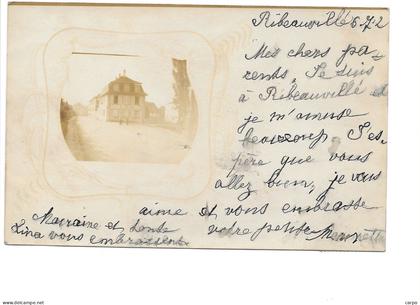 Ribeauvillé 6.7.2
Mes chers pa-
rents, Je suis
à Ribeauvillé et
je m'amuse
beaucoup. J'es-
père que vous
allez bien, je vous
aime et vous embrasse
votre petite
Marraine et tante
Lina vous embrassent